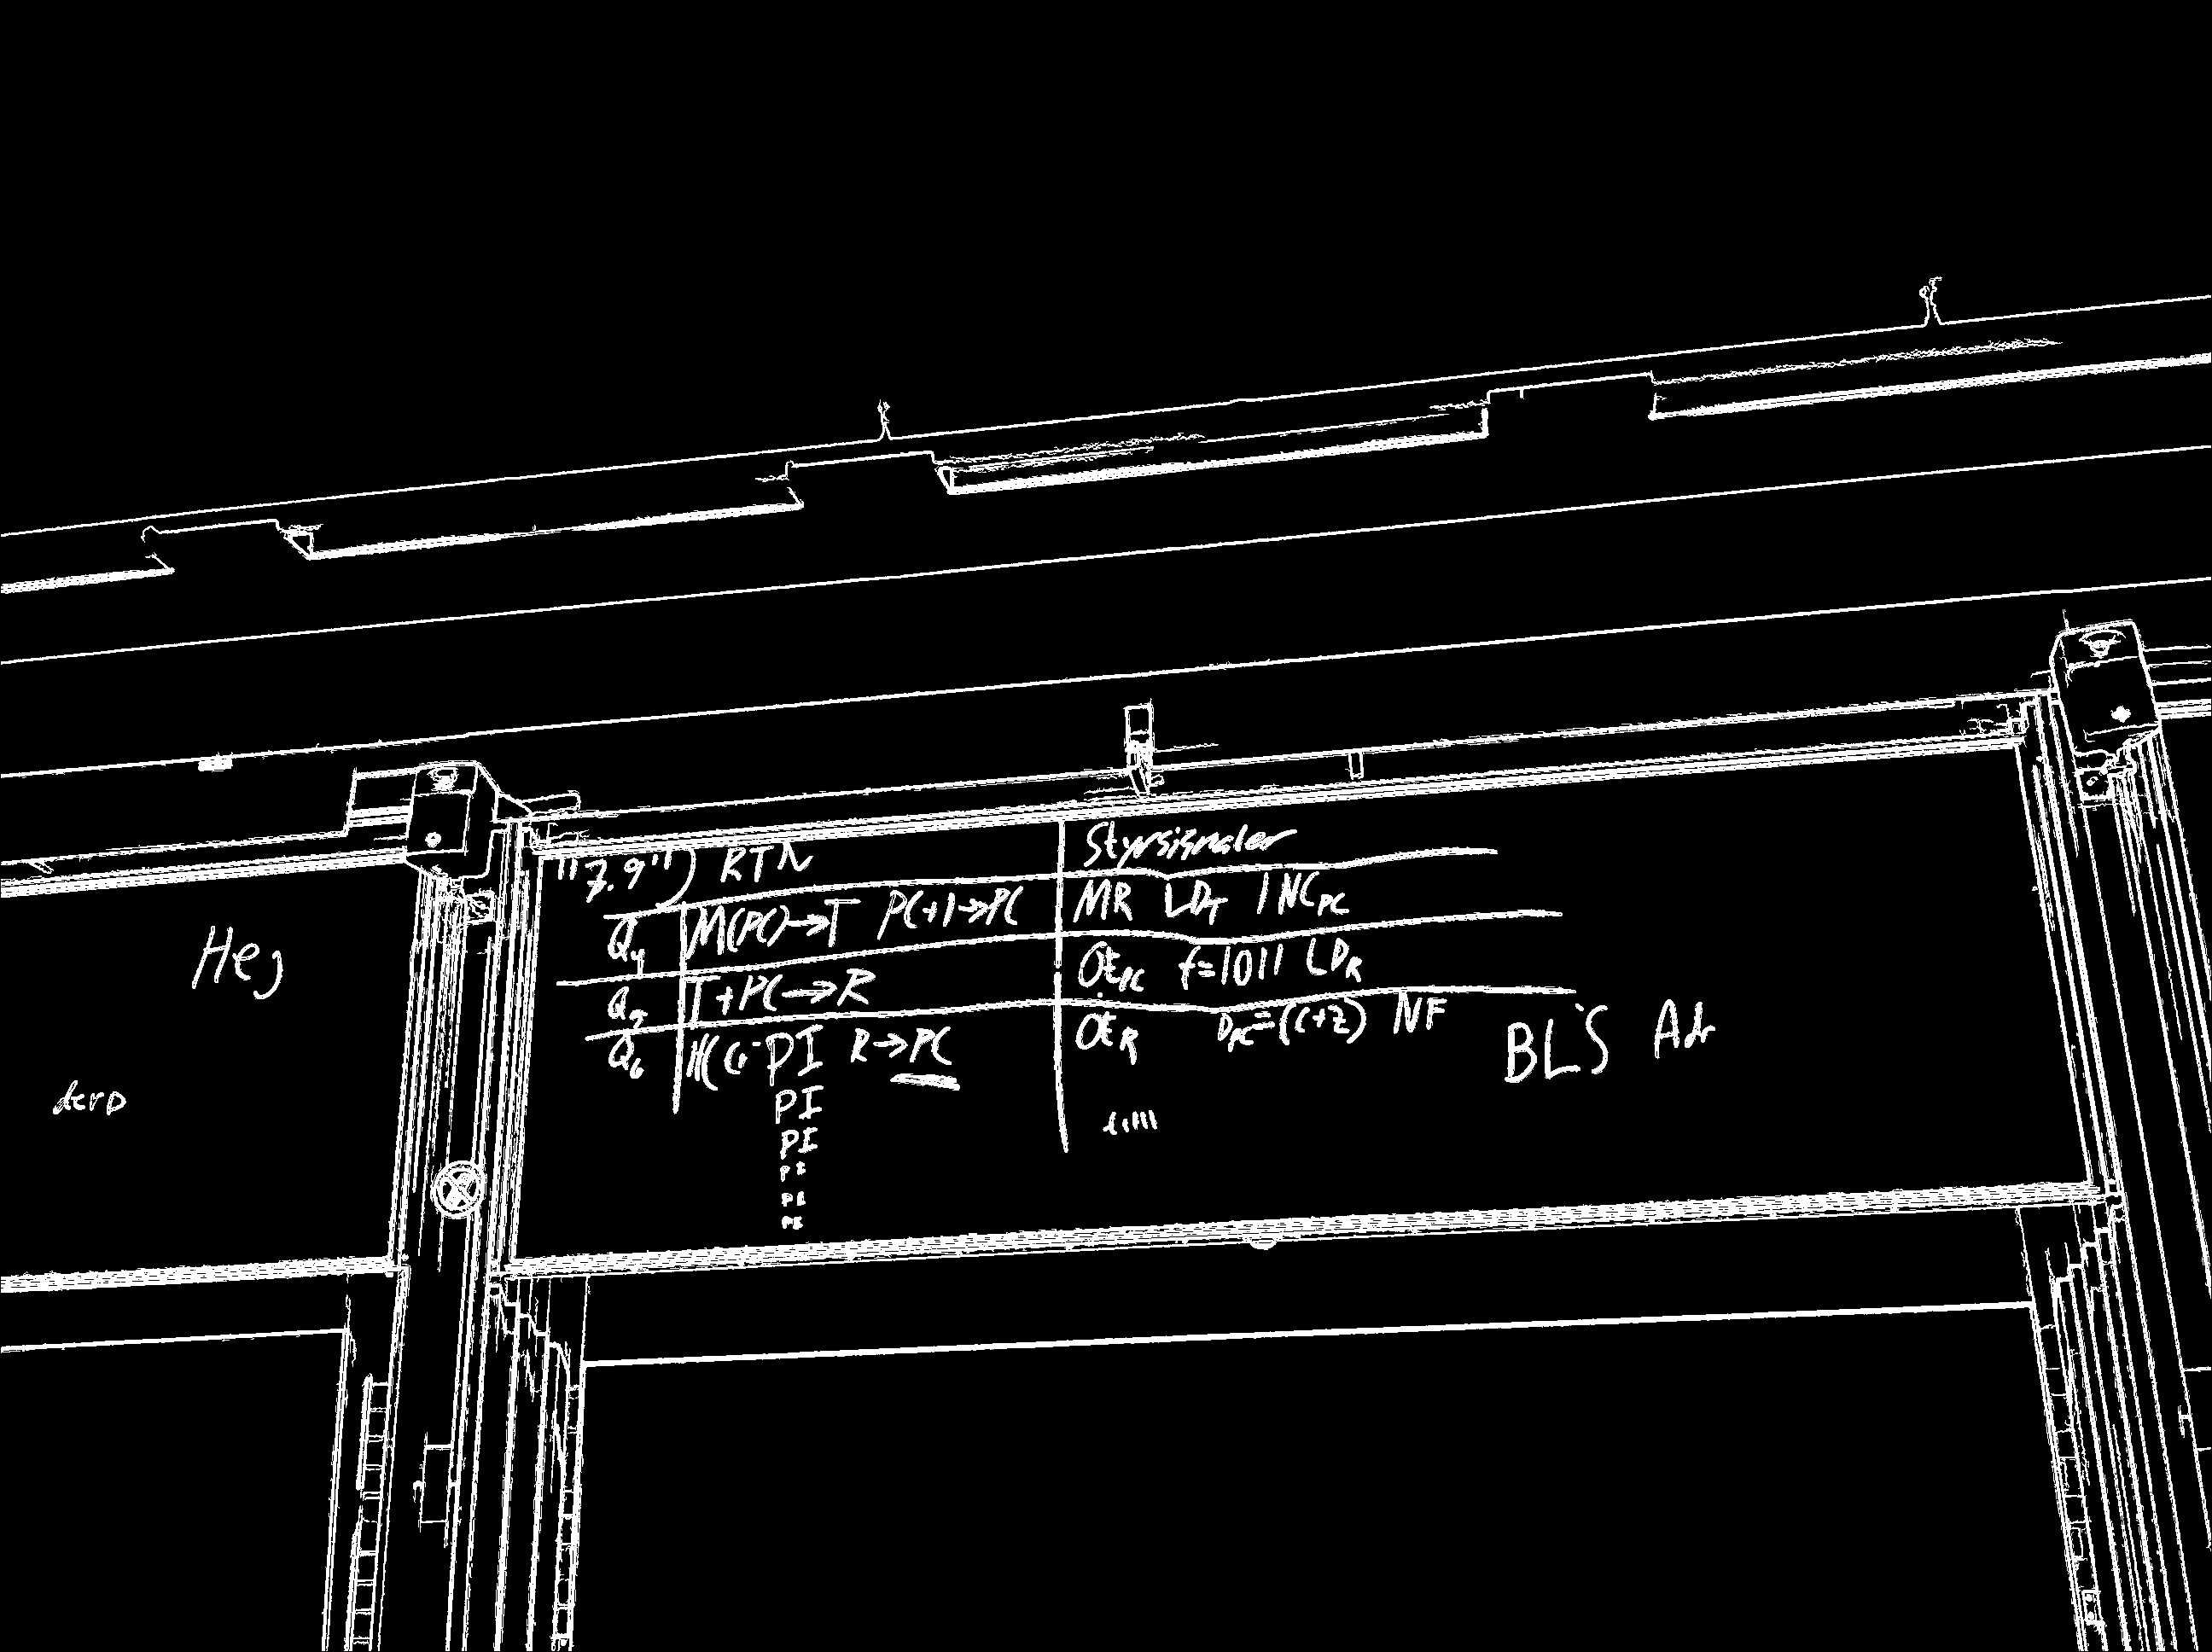 Hej
derp
"7.9") RTN Styrsignaler
Q4 M(PC)→T PC+1→PC MR LDT INCPC
Q5 T+PC→R OEPC f=1011 LDR
Q6 PI R→PC OER DPC=(C+Z) NF
BLS Adr
PI
PI
PI
PI
PI